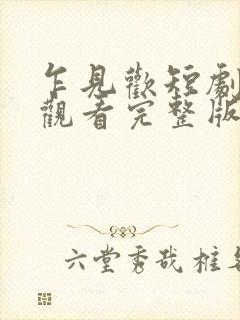 乍見歡短劇
觀看完整版
六堂秀哉桩